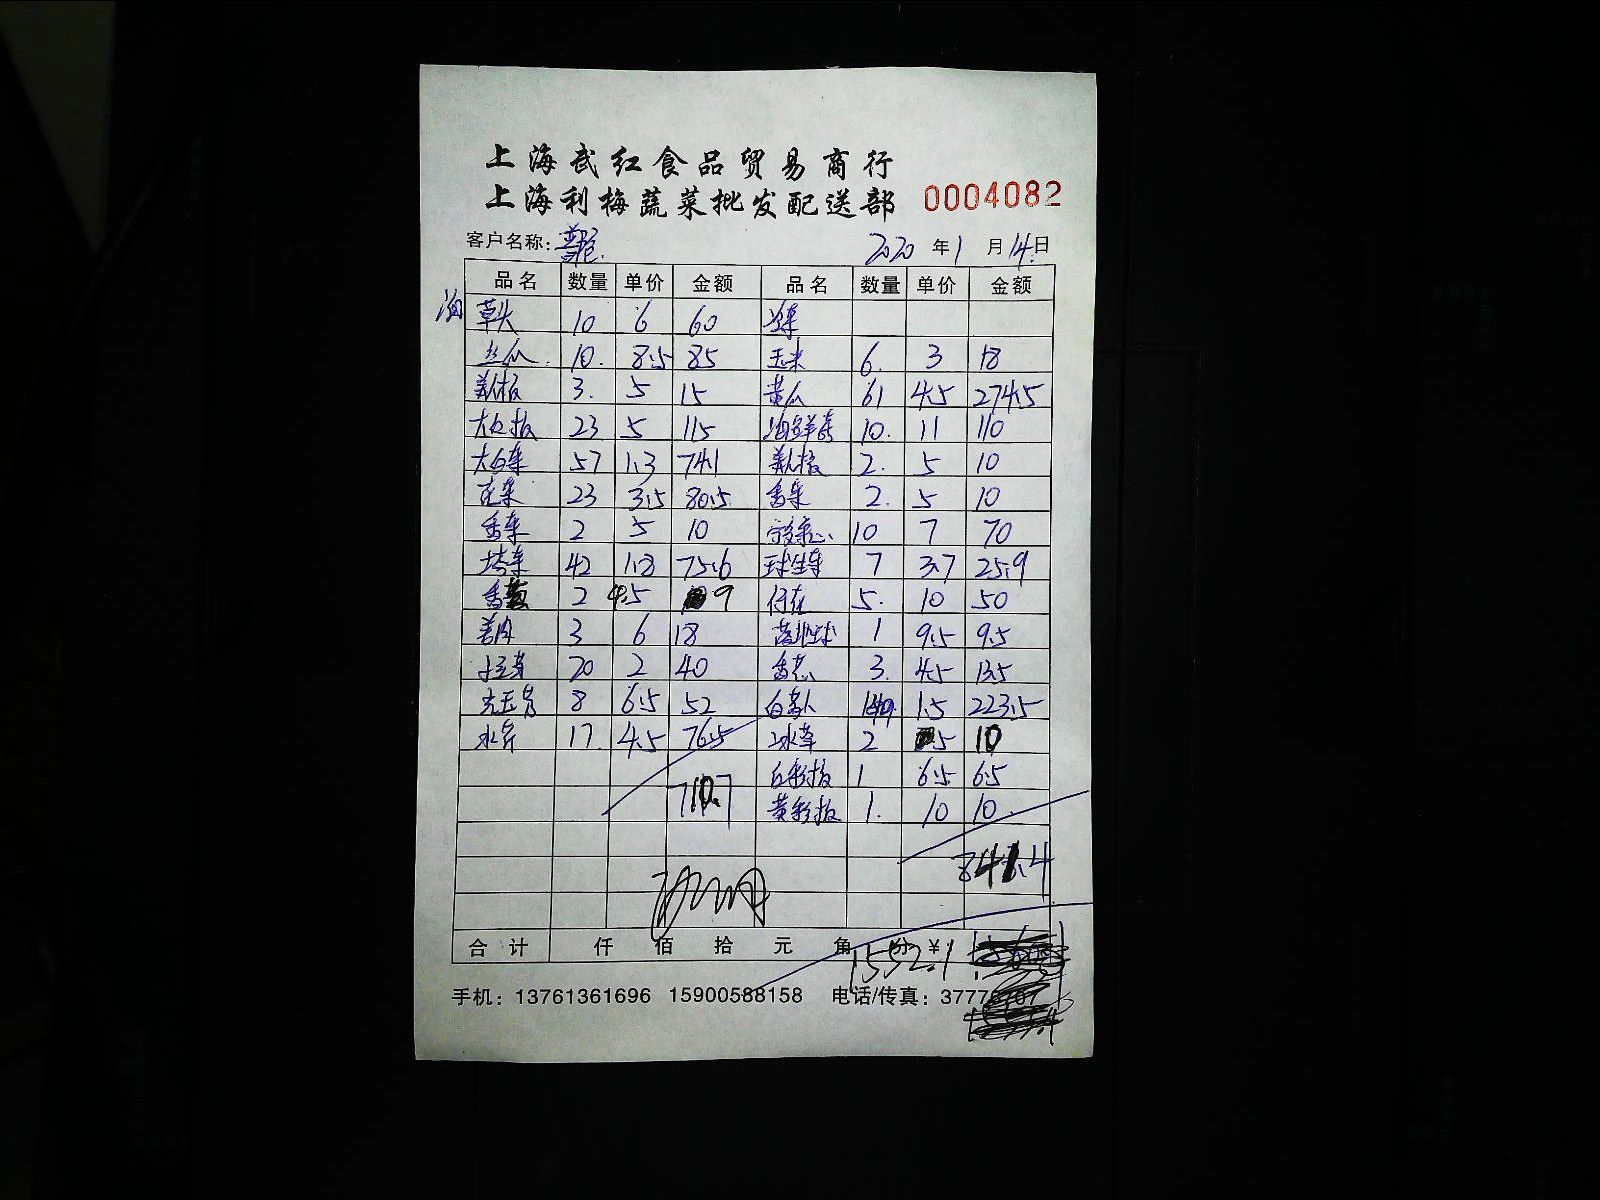 上海武红食品贸易商行
上海利梅蔬菜批发配送部 0004082
客户名称: 2020 年 1 月 14 日
品名 数量 单价 金额 品名 数量 单价 金额
草头 10 6 60 冷菜
丝瓜 10. 8.5 85 玉米 6. 3 18
美人椒 3. 5 15 黄瓜 61 4.5 274.5
大红椒 23 5 115 海鲜菇 10. 11 110
大白菜 57 1.3 74.1 美人椒 2. 5 10
花菜 23 3.5 80.5 香菜 2. 5 10
香菜 2 5 10 10 7 70
塔菜 42 1.8 75.6 球生菜 7 3.7 25.9
香葱 2 4.5 9 5. 10 50
姜肉 3 6 18 1 9.5 9.5
土豆 20 2 40 香葱 3. 4.5 13.5
8 6.5 52 白萝卜 149 1.5 223.5
水芹 17. 4.5 76.5 冰草 2 5 10
红彩椒 1 6.5 6.5
710.7 黄彩椒 1. 10 10
841.4
合计 仟 佰 拾 元 角 分 ¥ 1552.1
手机: 13761361696 15900588158 电话/传真: